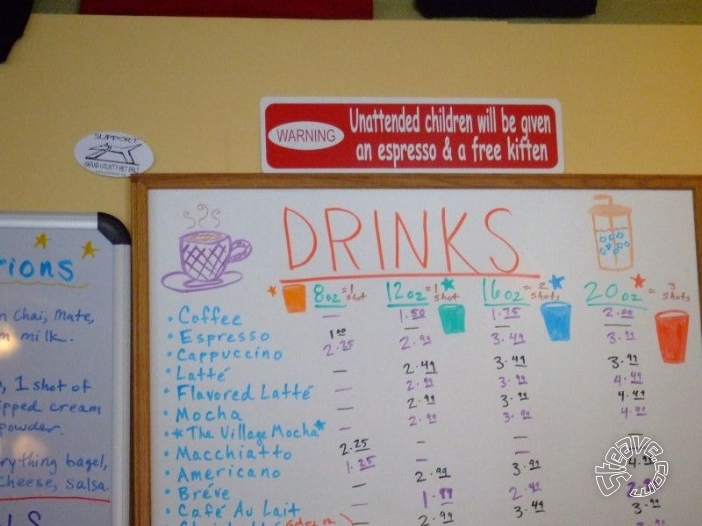 WARNING
Unattended children will be given
an espresso & a free kitten
SUPPORT
DRINKS
8oz = 1 shot
12oz = 1 shot
16oz = 2 shots
20oz = 3 shots
• Coffee — 1.50 1.75 2.00
• Espresso 1.00 — — —
• Cappuccino 2.25 2.99 3.49 3.99
• Latté — 2.49 3.49 3.99
• Flavored Latté — 2.99 3.99 4.49
• Mocha — 2.99 3.99 4.49
• ★The Village Mocha★ — 2.99 3.99
• Macchiatto 2.25 — — —
• Americano 1.25 — —
• Bréve — 2.99 3.99 4.99
• Café Au Lait —
2.99 3.49
ions
n Chai, Mate,
m milk.
, 1 shot of
pped cream
powder.
rything bagel,
cheese, salsa.
LS
Steave.com